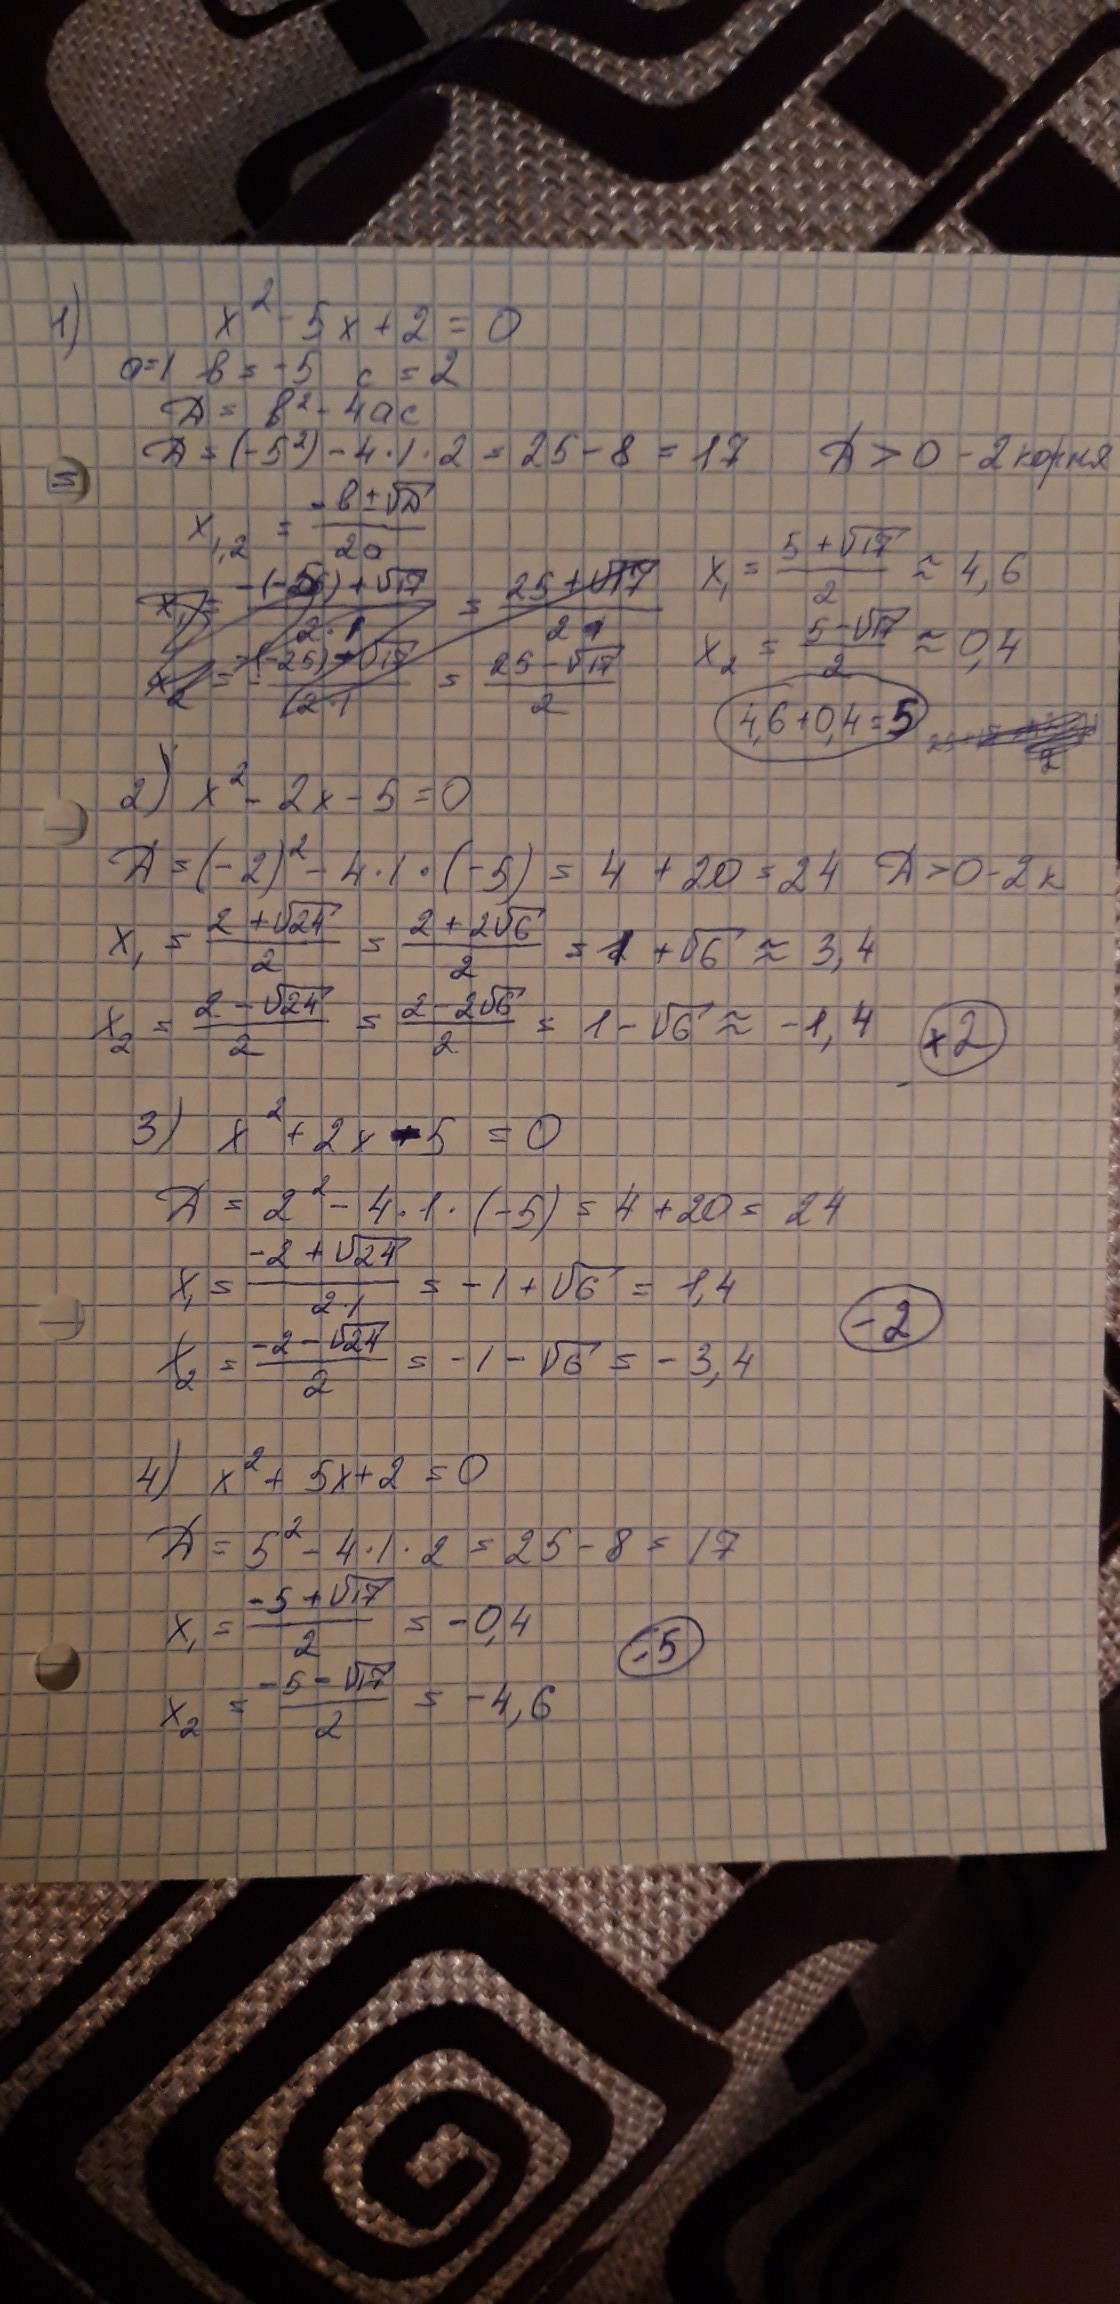 1) x² - 5x + 2 = 0
a=1 b = -5 c = 2
D = b² - 4ac
D = (-5²) - 4·1·2 = 25 - 8 = 17 D > 0 - 2 корня
x₁,₂ = (-b ± √D)/2a
x₁ = (5 + √17)/2 ≈ 4,6
x₂ = (-(-25) - √17)/(2·1) = (25 - √17)/2
x₂ = (5 - √17)/2 ≈ 0,4
4,6 + 0,4 = 5
2) x² - 2x - 5 = 0
D = (-2)² - 4·1·(-5) = 4 + 20 = 24 D > 0 - 2к
x₁ = (2 + √24)/2 = (2 + 2√6)/2 = 1 + √6 ≈ 3,4
x₂ = (2 - √24)/2 = (2 - 2√6)/2 = 1 - √6 ≈ -1,4 +2
3) x² + 2x - 5 = 0
D = 2² - 4·1·(-5) = 4 + 20 = 24
x₁ = (-2 + √24)/(2·1) = -1 + √6 = 1,4
-2
x₂ = (-2 - √24)/2 = -1 - √6 = -3,4
4) x² + 5x + 2 = 0
D = 5² - 4·1·2 = 25 - 8 = 17
x₁ = (-5 + √17)/2 = -0,4
-5
x₂ = (-5 - √17)/2 = -4,6